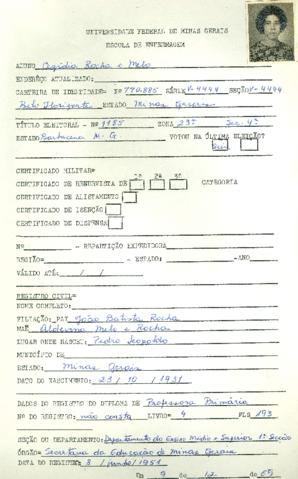 UNIVERSIDADE FEDERAL DE MINAS GERAIS
ESCOLA DE ENFERMAGEM
ALUNO Rocha e Melo
ENDEREÇO ATUALIZADO:
CARTEIRA DE IDENTIDADE- Nº 770.885 SÉRIE V-4494 SEÇÃO V-4494
Belo Horizonte ESTADO Minas Gerais
TÍTULO ELEITORAL - Nº 9185 ZONA 23ª Sec. 4ª
ESTADO Barbacena M. G. VOTOU NA ÚLTIMA ELEIÇÃO?
Sim
CERTIFICADO MILITAR=
1a 2a 3a
CERTIFICADO DE RESERVISTA DE CATEGORIA
CERTIFICADO DE ALISTAMENTO
CERTIFICADO DE ISENÇÃO
CERTIFICADO DE DISPENSA
Nº - REPARTIÇÃO EXPEDIDORA
REGIÃO= - ESTADO: -ANO
VÁLIDO ATÉ: / /
REGISTRO CIVIL=
NOME COMPLETO:
FILIAÇÃO: PAI João Batista Rocha
MÃE Melo e Rocha
LUGAR ONDE NASCEU: Pedro Leopoldo
MUNICÍPIO DE
ESTADO: Minas Gerais
DATA DO NASCIMENTO: 23 / 10 / 1931
DADOS DO REGISTRO DO DIPLOMA DE Professora Primária
Nº DO REGISTRO: não consta LIVRO= 4 FLS 193
SEÇÃO OU DEPARTAMENTO: Departamento do Ensino Médio e Superior 1ª Secção
ÓRGÃO= Secretaria da Educação de Minas Gerais
DATA DO REGISTRO: 8 / junho / 1951
9 de 12 de 65